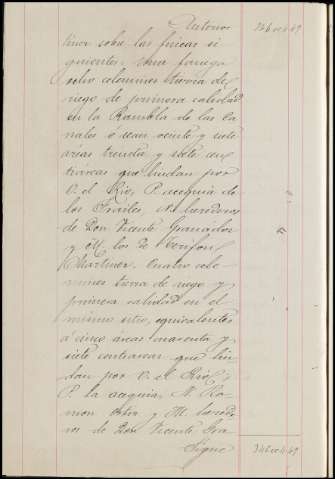 Antonio
tinos sobre las fincas si
guientes. Una fanega
ocho celemines tierra de
riego de primera calidad
en la Rambla de las Ca
nales ó sean veinte y siete
áreas treinta y siete cen
tiáreas que lindan por
O. el Rio, P. acequia de
los Frailes, N. herederos
de Don Vicente Granados
y M. los de
Martinez. Cuatro cele
mines tierra de riego y
primera calidad en el
mismo sitio, equivalentes
á cinco áreas cuarenta y
siete centiareas que lin
dan por O. el Rio,
P. la acequia, N. Ra
mon y M. herede
ros de Don Vicente Gra
Sigue